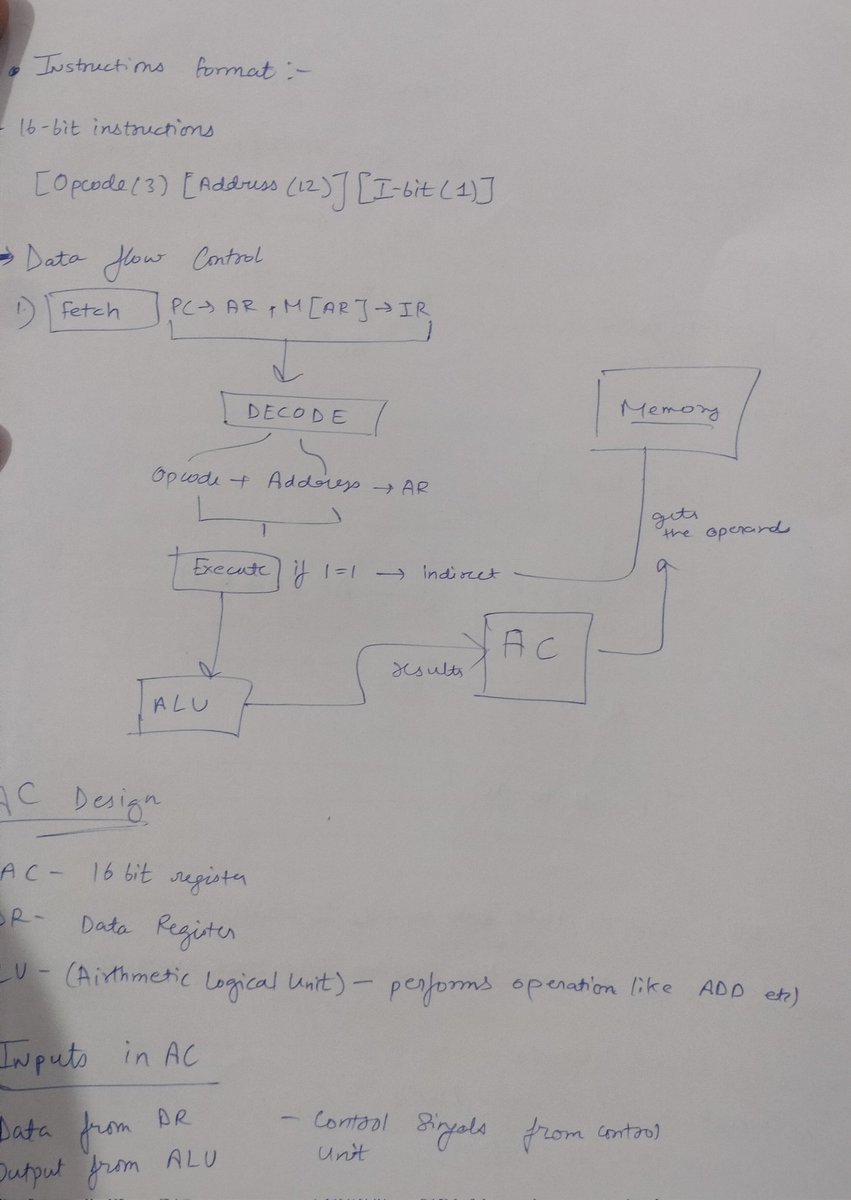 • Instructions format :-
- 16-bit instructions
[Opcode(3) [Address (12)] [I-bit(1)]
→ Data flow Control
1.) Fetch PC→ AR, M[AR]→IR
DECODE
Memory
Opcode + Address → AR
gets
the operands
Execute if 1=1 → indirect
AC
results
ALU
AC Design
AC - 16 bit register
DR- Data Register
LU - (Airthmetic Logical Unit) - performs operation like ADD etc)
Inputs in AC
Data from DR - Control Singals from control
Unit
Output from ALU